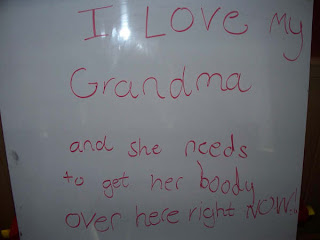 I LOVE my
Grandma
and she needs
to get her boody
over here right NOW!!